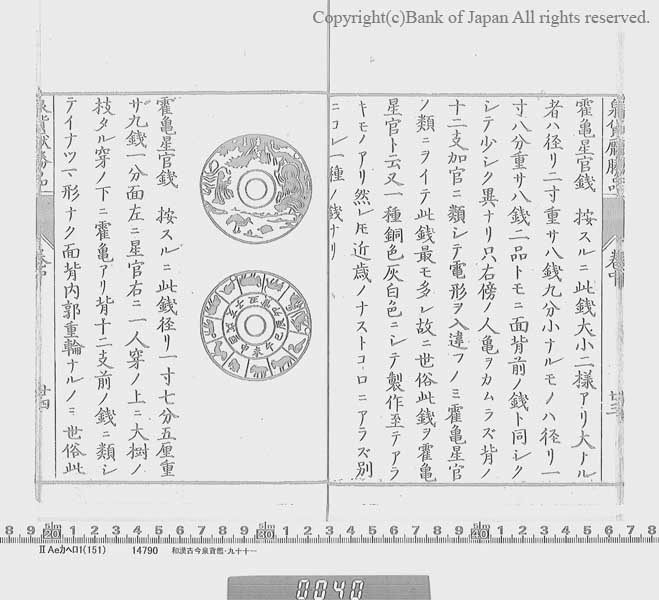 Copyright(c)Bank of Japan All rights reserved.
霍亀星官銭 按スルニ此銭大小二様アリ大ナル
者ハ径リ二寸重サ八銭九分小ナルモノハ径リ一
寸八分重サ八銭二品トモニ面背前ノ銭ト同シク
シテ少シク異ナリ只右傍ノ人亀ヲカムラズ背ノ
十二支加官ニ類シテ電形ヲ入違フノミ霍亀星官
ノ類ニヲイテ此銭最モ多シ故ニ世俗此銭ヲ霍亀
星官ト云又一種銅色灰白色ニシテ製作至テアラ
キモノアリ然レ𪜈近歳ノナストコロニアラズ別
ニコレ一種ノ銭ナリ
霍亀星官銭 按スルニ此銭径リ一寸七分五厘重
サ九銭一分面左ニ星官右ニ一人穿ノ上ニ大樹ノ
枝タル穿ノ下ニ霍亀アリ背十二支前ノ銭ニ類シ
テイナツマ形ナク面背内郭重輪ナルノミ世俗此
廿四
8 9 20 1 2 3 4 5 6 7 8 9 30 1 2 3 4 5 6 7 8 9 40 1 2 3 4 5 6 7 8
II AeカヘロI(151) 14790 和漢古今泉貨鑑・九十十一
0040